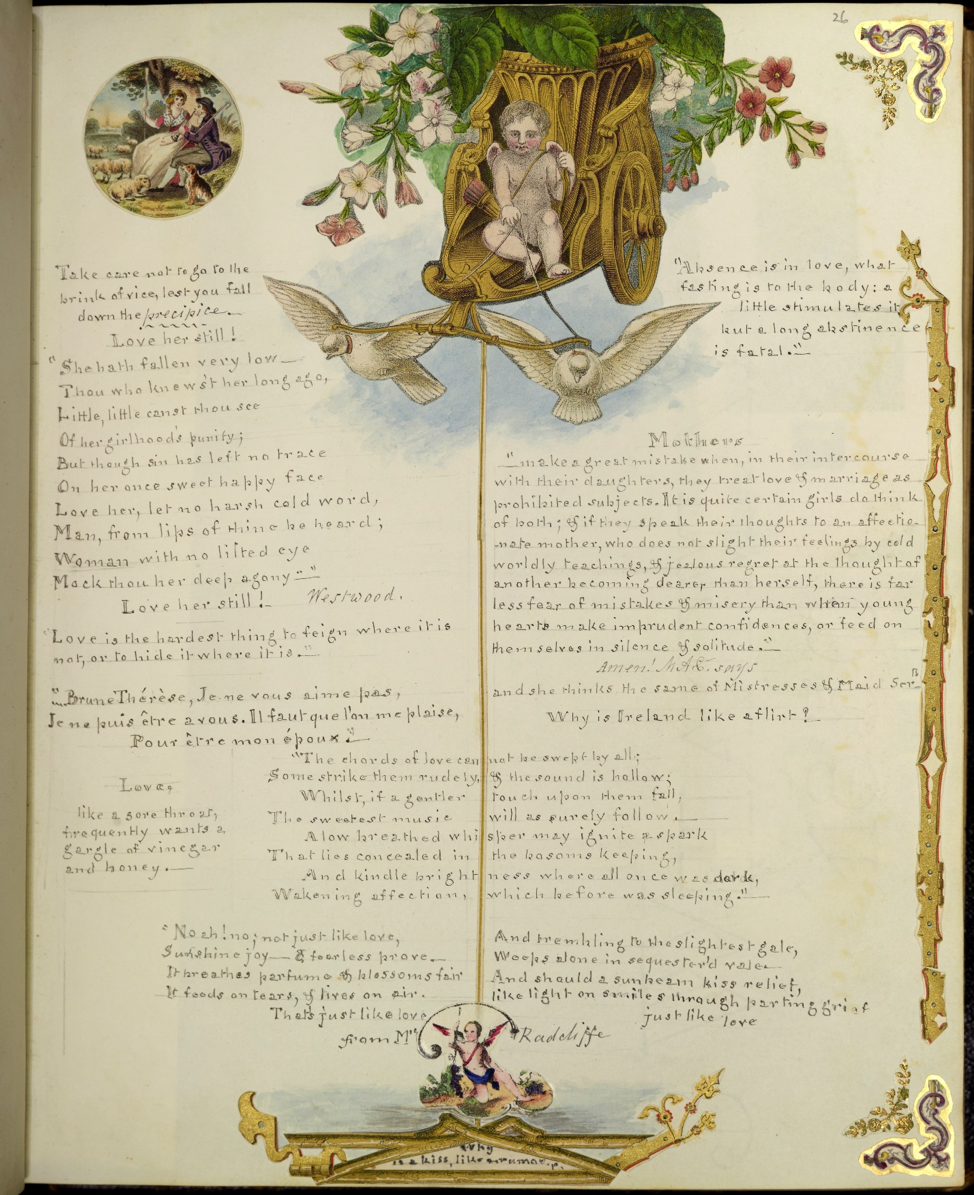 26
Take care not to go to the
brink of vice, lest you fall
down the precipice.
Love her still!
"She hath fallen very low—
Thou who knew'st her long ago,
Little, little canst thou see
Of her girlhood's purity;
But though sin has left no trace
On her once sweet happy face
Love her, let no harsh cold word,
Man, from lips of thine be heard;
Woman with no lifted eye
Mock thou her deep agony—"
Love her still! Westwood.
"Love is the hardest thing to feign where it is
not, or to hide it where it is."
"Brune Thérèse, Je ne vous aime pas,
Je ne puis être a vous. Il faut que l'on me plaise,
Pour être mon époux."
Love,
like a sore throat,
frequently wants a
gargle of vinegar
and honey.—
"Absence is in love, what
fasting is to the body: a
little stimulates it,
but a long abstinence
is fatal."
Mothers
"make a great mistake when, in their intercourse
with their daughters, they treat love & marriage as
prohibited subjects. It is quite certain girls do think
of both; & if they speak their thoughts to an affectio-
nate mother, who does not slight their feelings by cold
worldly teachings, & jealous regret at the thought of
another becoming dearer than herself, there is far
less fear of mistakes & misery than when young
hearts make imprudent confidences, or feed on
themselves in silence & solitude."
Amen! M.A.C. says
and she thinks the same of Mistresses & Maid Ser
Why is Ireland like a flirt?
"The chords of love cannot be swept by all;
Some strike them rudely, & the sound is hollow;
Whilst, if a gentler touch upon them fall,
The sweetest music will as surely follow.
A low breathed whisper may ignite a spark
That lies concealed in the bosoms keeping,
And kindle brightness where all once was dark,
Wakening affection, which before was sleeping."
"No ah! no; not just like love,
Sunshine joy— & fearless prove.
It breathes parfume & blossoms fair
It feeds on tears, & lives on air.
Thats just like love
And trembling to the slightest gale,
Weeps alone in sequester'd vale
And should a sunbeam kiss relief,
like light on smiles through parting grief
just like love
from Mrs Radcliffe
Why
is a kiss, like a rumour.